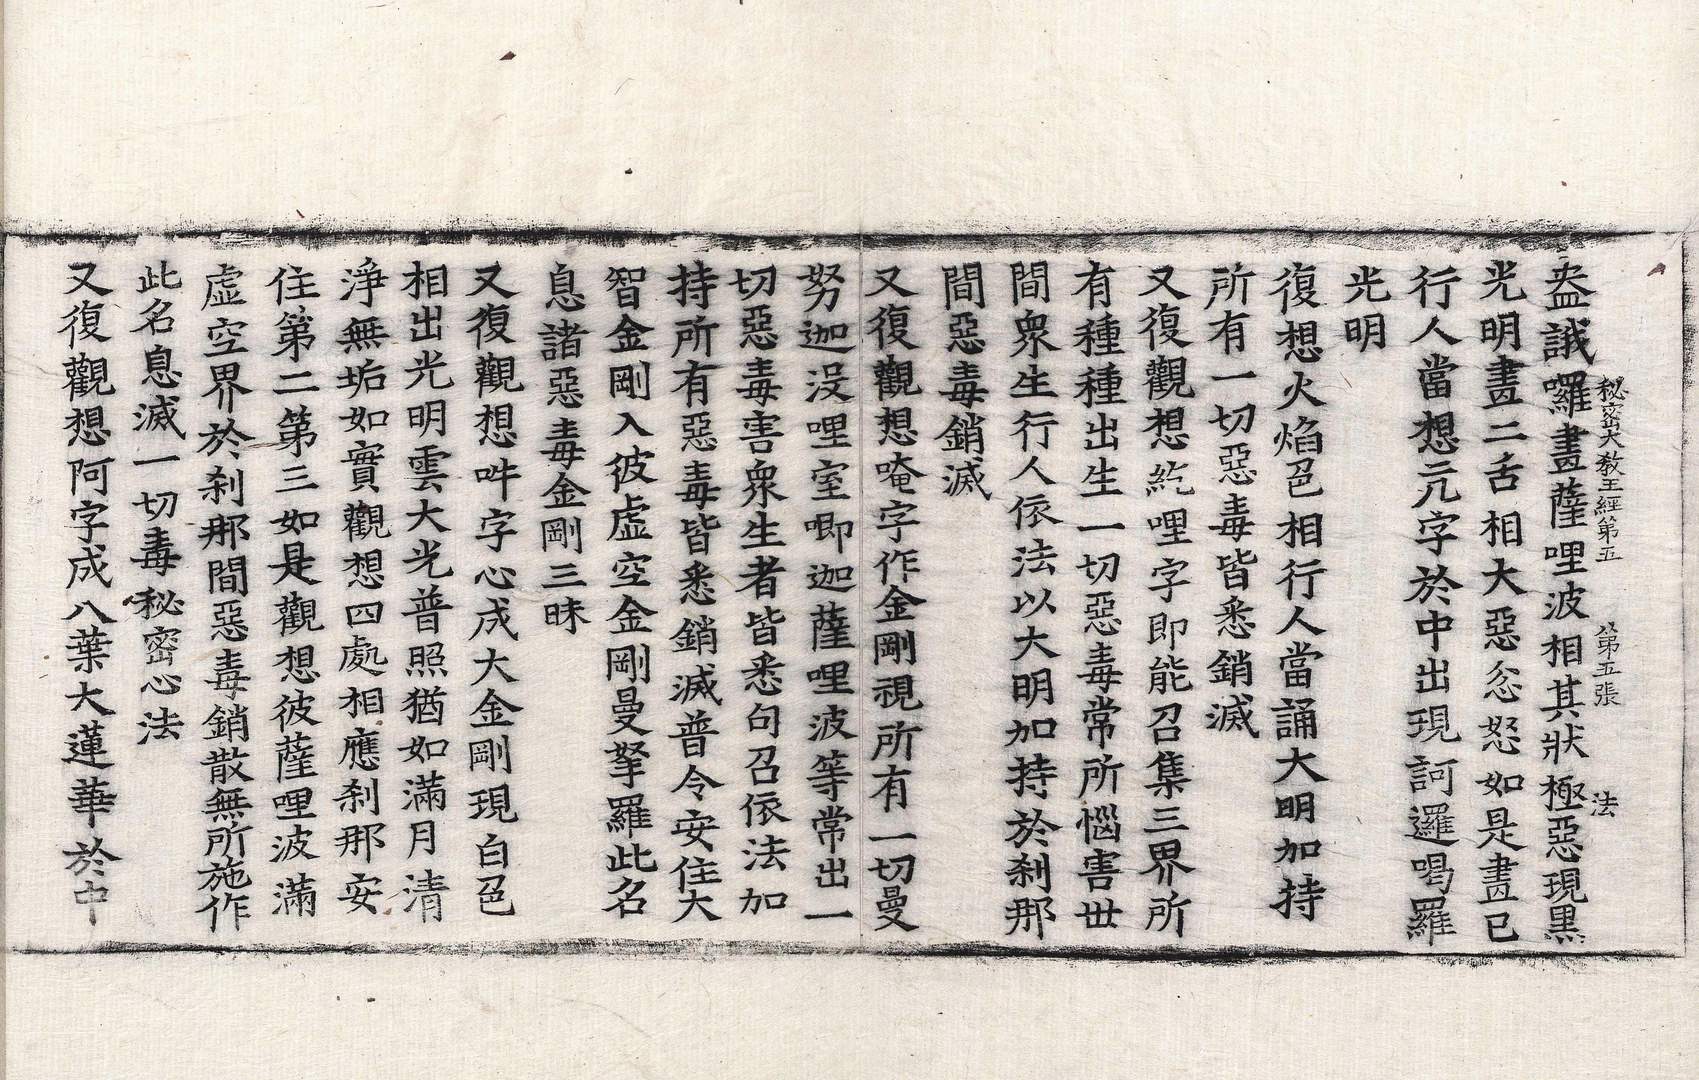 盎誐囉畫薩哩波相其狀極惡現黑
秘密大敎王經第五 第五張 法
光明畫二舌相大惡忿怒如是畫已
行人當想亢字於中出現訶邏喝羅
光明
復想火焰色相行人當誦大明加持
所有一切惡毒皆悉銷滅
又復觀想紇哩字即能召集三界所
有種種出生一切惡毒常所惱害世
間衆生行人依法以大明加持於刹那
間惡毒銷滅
又復觀想唵字作金剛視所有一切曼
努迦沒哩室唧迦薩哩波等常出一
切惡毒害衆生者皆悉句召依法加
持所有惡毒皆悉銷滅普令安住大
智金剛入彼虛空金剛曼拏羅此名
息諸惡毒金剛三昧
又復觀想吽字心成大金剛現白色
相出光明雲大光普照猶如滿月清
淨無垢如實觀想四處相應刹那安
住第二第三如是觀想彼薩哩波滿
虛空界於刹那間惡毒銷散無所施作
此名息滅一切毒秘密心法
又復觀想阿字成八葉大蓮華於中